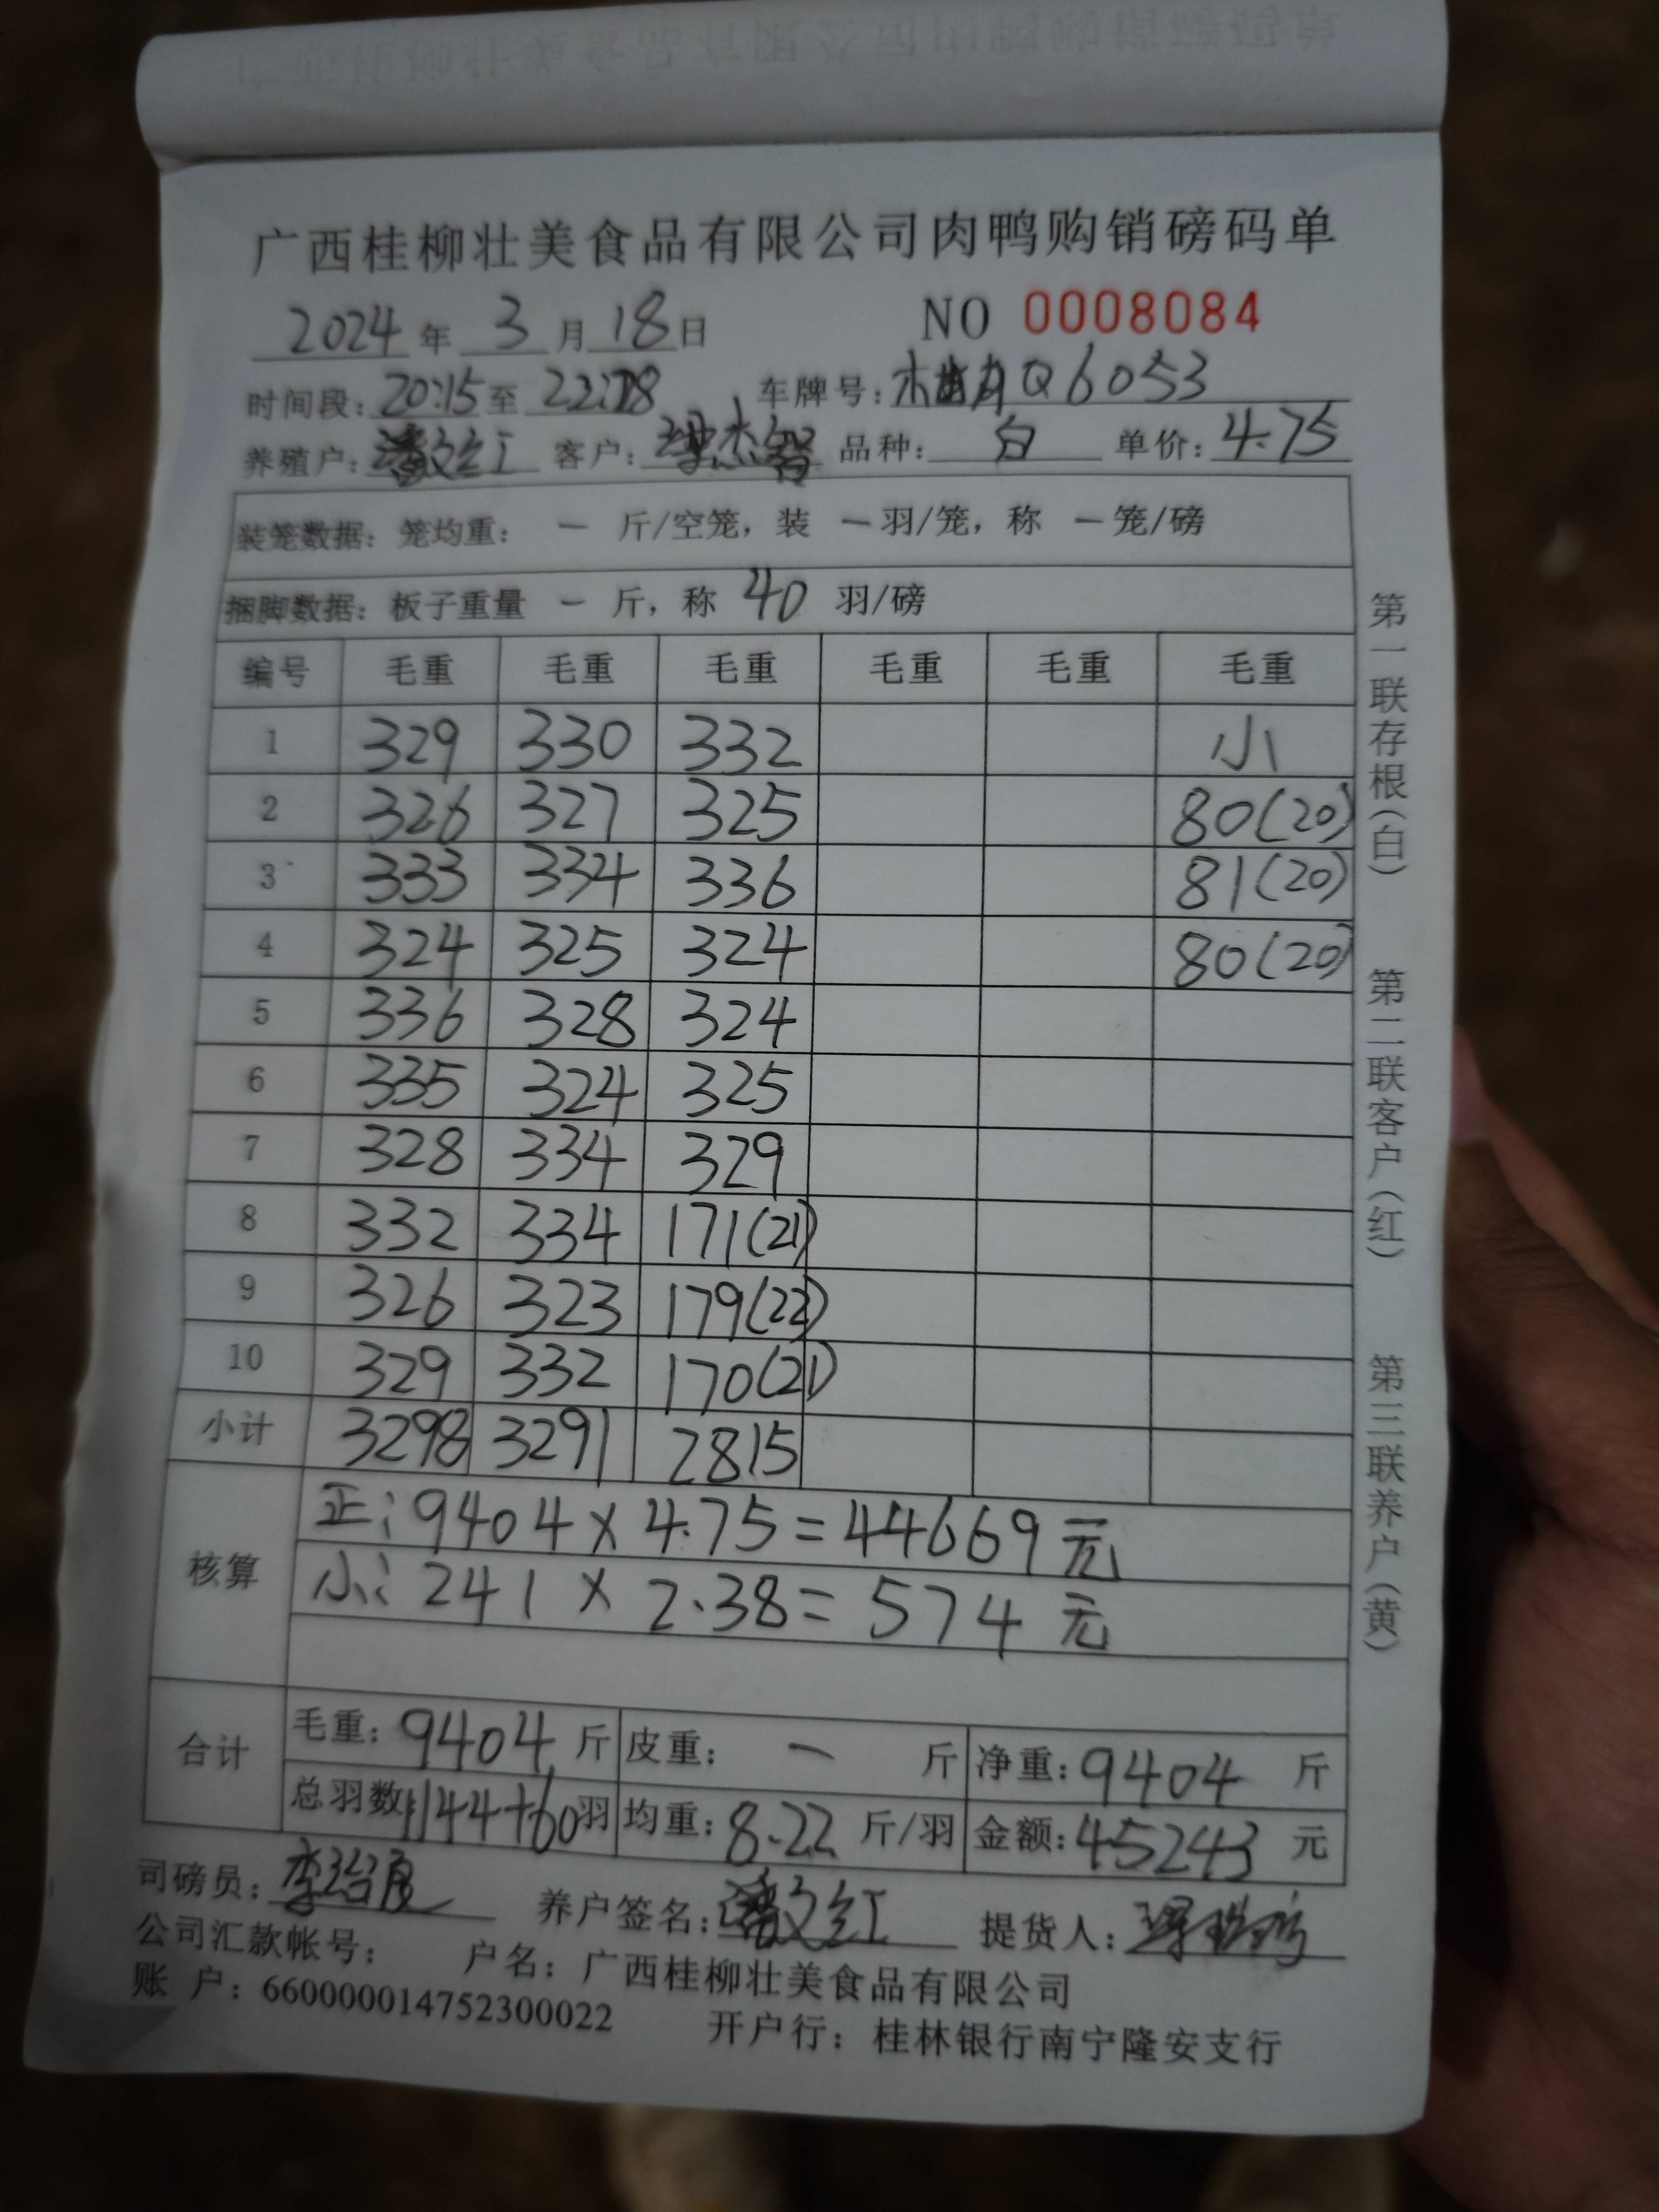 广西桂柳壮美食品有限公司肉鸭购销磅码单
2024年 3月18日 NO 0008084
时间段: 20:15至 车牌号: Q6053
养殖户: 潘文红 客户: 品种: 白 单价: 4.75
装笼数据: 笼均重: — 斤/空笼, 装 — 羽/笼, 称 — 笼/磅
捆脚数据: 板子重量 — 斤, 称 40 羽/磅
编号 毛重 毛重 毛重 毛重 毛重 毛重
1 329 330 332 小
2 326 327 325 80(20)
3 333 334 336 81(20)
4 324 325 324 80(20)
5 336 328 324
6 335 324 325
7 328 334 329
8 332 334 171(21)
9 326 323 179(22)
10 329 332 170(21)
小计 3298 3291 2815
核算
正: 9404×4.75=44669元
小: 241×2.38=574元
合计
毛重: 9404斤 皮重: — 斤 净重: 9404 斤
总羽数: 1144+60羽 均重: 8.22 斤/羽 金额: 45243 元
司磅员: 养户签名: 潘文红 提货人:
公司汇款帐号: 户名: 广西桂柳壮美食品有限公司
账 户: 660000014752300022 开户行: 桂林银行南宁隆安支行
第一联存根(白) 第二联客户(红) 第三联养户(黄)